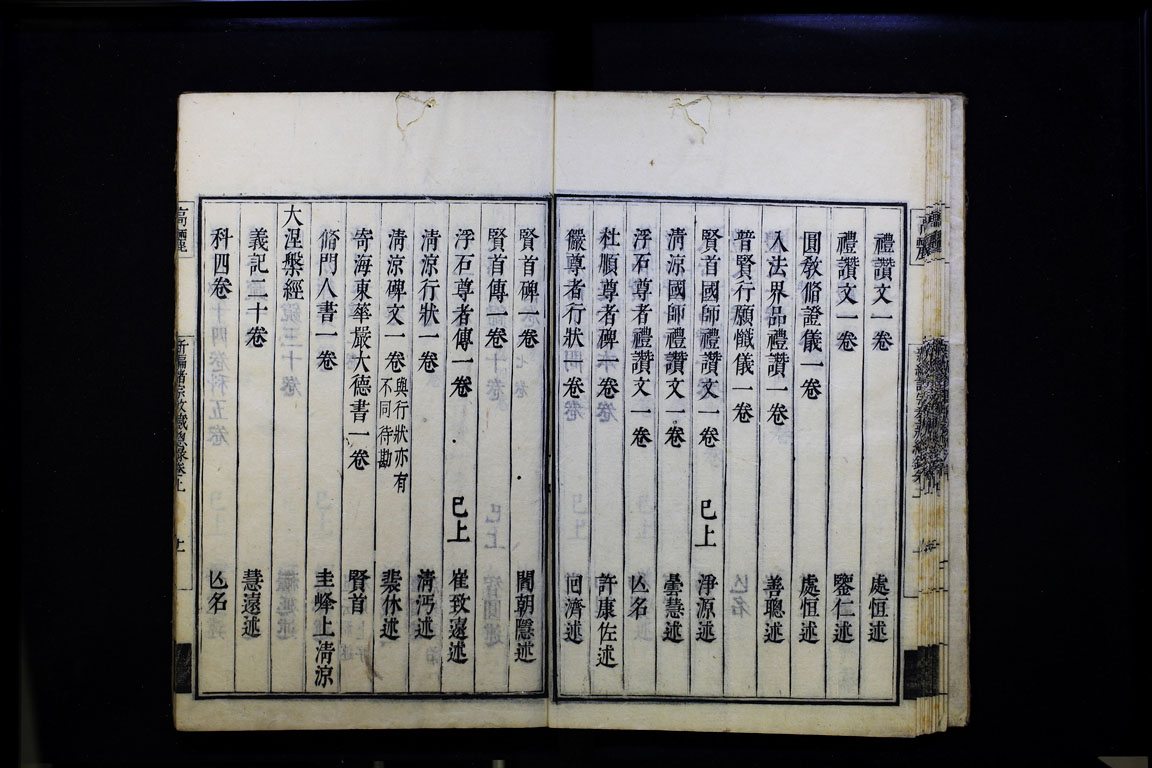 禮讚文一卷 處恒述
禮讚文一卷 鑒仁述
圓敎脩證儀一卷 處恒述
入法界品禮讚一卷 善聰述
普賢行願懺儀一卷
賢首國師禮讚文一卷 已上 淨源述
淸涼國師禮讚文一卷 曇慧述
浮石尊者禮讚文一卷 亾名
杜順尊者碑一卷 許康佐述
儼尊者行狀一卷 述
賢首碑一卷 閻朝隱述
賢首傳一卷
浮石尊者傳一卷 已上 崔致遠述
淸涼行狀一卷 淸沔述
淸涼碑文一卷 與行狀亦有不同待勘 裴休述
寄海東華嚴大德書一卷 賢首
脩門人書一卷 圭峰上淸涼
大涅槃經
義記二十卷 慧遠述
科四卷 亾名
高麗
新編諸宗敎藏總錄卷上